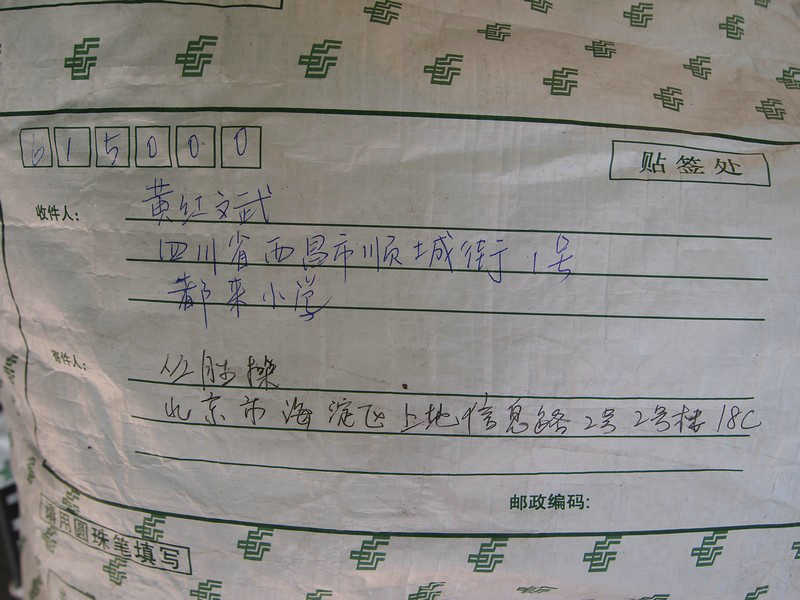 615000
贴签处
收件人:
黄红文武
四川省西昌市顺城街1号
都来小学
寄件人:
北京市海淀区上地信息路2号2号楼18C
邮政编码:
请用圆珠笔填写